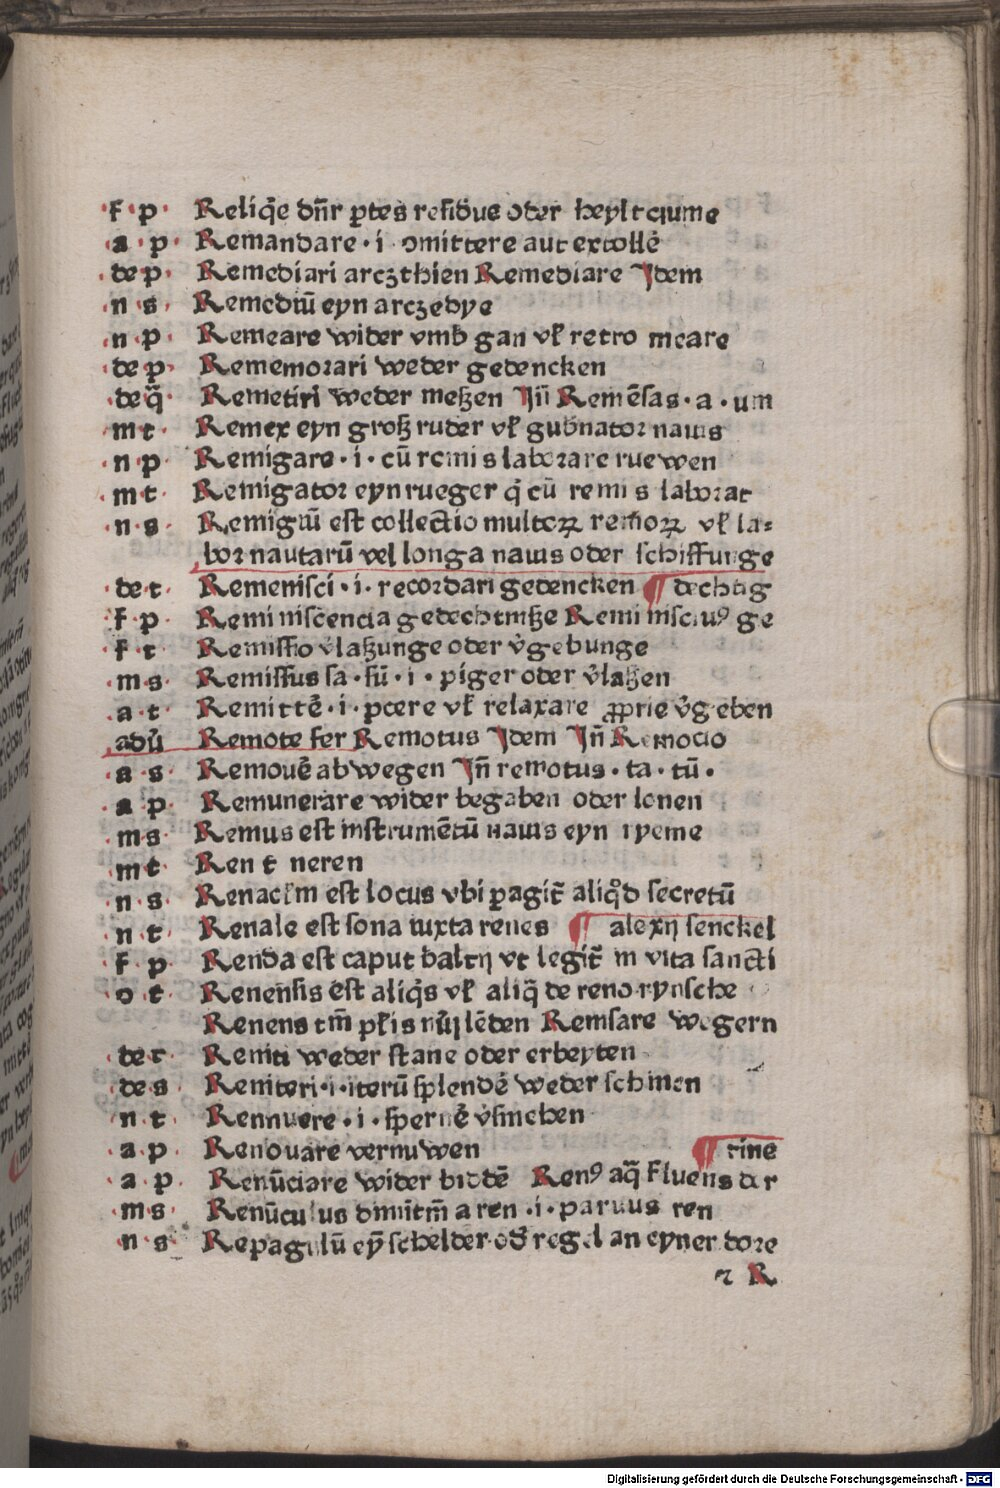 f p Reliq̄e dn̄r ꝑtes residue oder heyltqume
a p Remandare · i · omittere aut extollē
de p Remediari arczthien Remediare Idem
n s Remediū eyn arczedye
n p Remeare wider vmb gan vł retro meare
de p Rememorari weder gedencken
de q̄ Remetiri weder meßen Jn̄ Remēsas · a · um
m t Remex eyn groß ruder vł gub̄nator nauis
n p Remigare · i · cū remis laborare ruewen
m t Remigator eyn rueger q̇ cū remis laborat
n s Remigiū est collectio multoꝝ remoꝝ vł la⸗
bor nautarū vel longa nauis oder schiffunge
de t Remenisci · i · recordari gedencken ¶ dechtig
f p Reminiscencia gedechtniße Reminisciuꝰ ge
f t Remissio v̓laßunge oder v̓gebunge
m s Remissus sa · sū · i · piger oder v̓laßen
a t Remittē · i · ꝑcere vł relaxare ꝓprie v̓geben
adū Remote fer Remotus Idem Jn̄ Remocio
a s Remouē abwegen Jn̄ remotus · ta · tū ·
a p Remunerare wider begaben oder lonen
m s Remus est instrumētū nauis eyn ryeme
m t Ren t neren
n s Renaclm est locus vbi ꝑagit̄ aliq̊d secretū
n t Renale est sona iuxta renes ¶ alexij senckel
f p Renda est caput baltij vt legit̄ in vita sancti
o t Renensis est aliq̇s vł aliq̄ de reno rynsche
Renens tm̄ płis nūi lēden Rensare wegern
de t Reniti weder stane oder erbeyten
de s Reniteri · i · iterū splendē weder schinen
n t Rennuere · i · spernē v̓smehen
a p Renouare vernuwen ¶ rine
a p Renūciare wider bidē Renꝰ aq̄ fluens der
m s Renūculus diminit̄m a ren · i · paruus ren
n s Repagulū eȳ schelder od̓ regel an eyner dore
r R
Digitalisierung gefördert durch die Deutsche Forschungsgemeinschaft - DFG